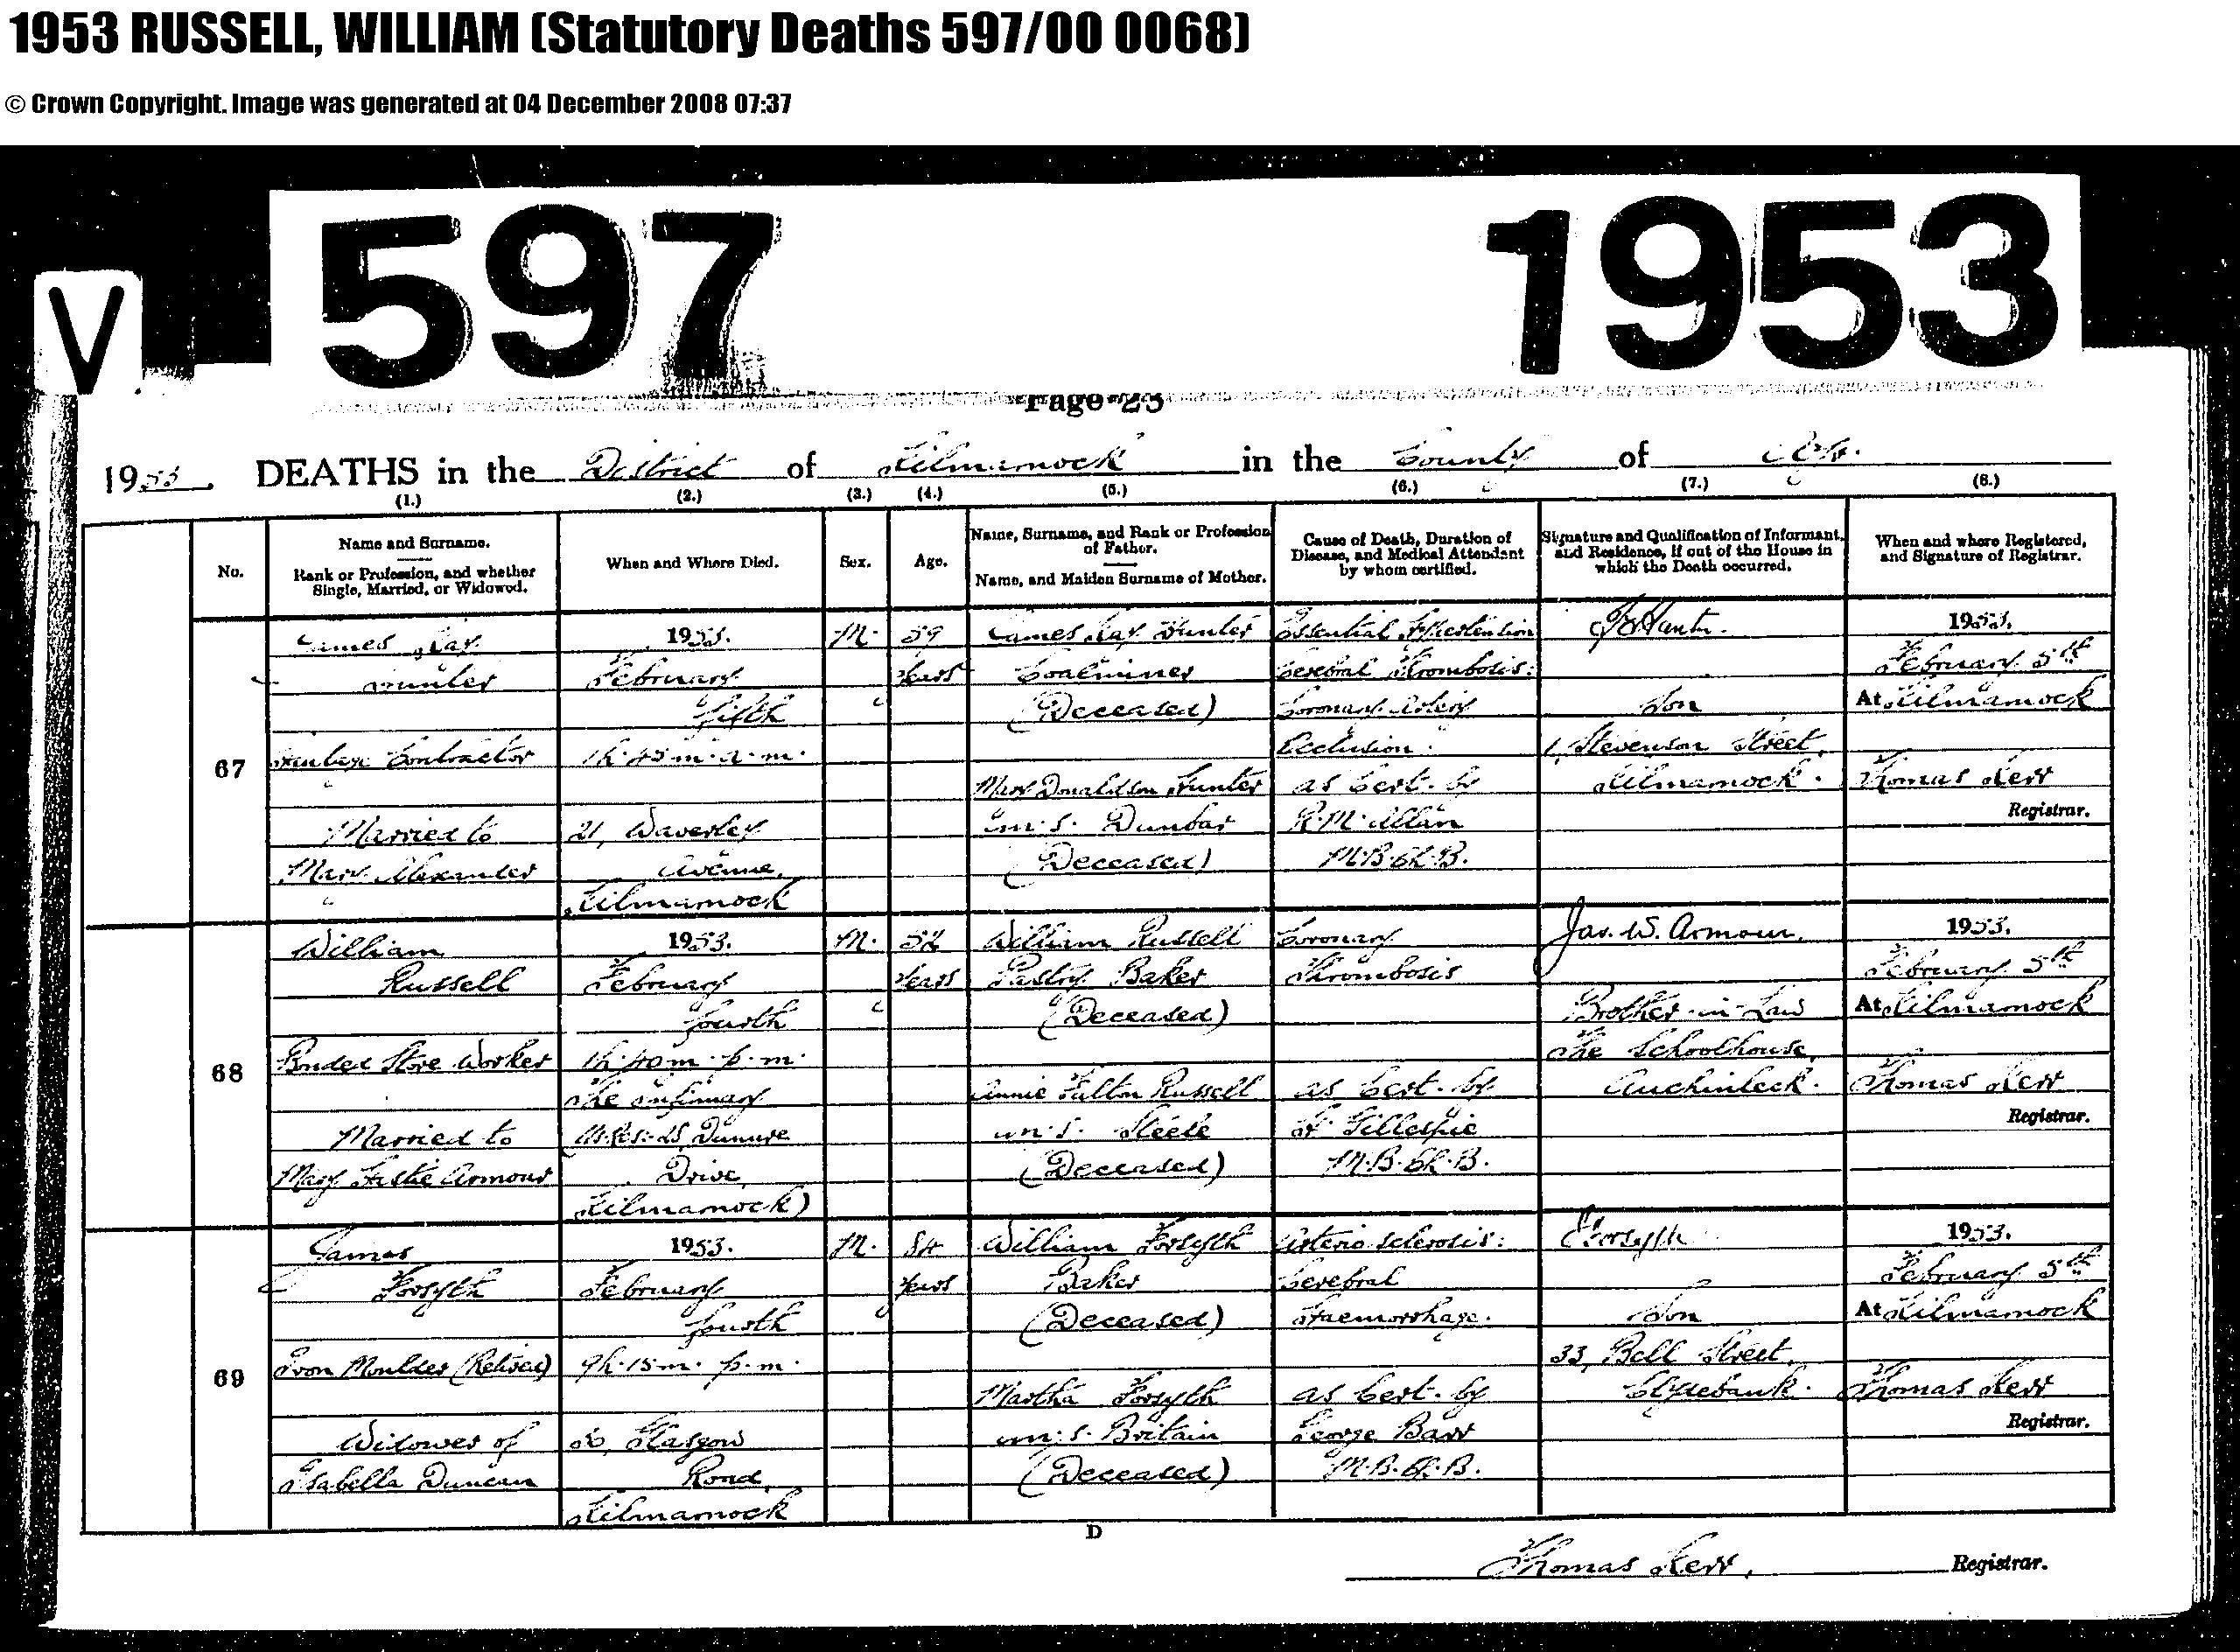 1953 RUSSELL, WILLIAM (Statutory Deaths 597/00 0068)
© Crown Copyright. Image was generated at 04 December 2008 07:37
597
1953
V
Page 23
1953. DEATHS in the District of Kilmarnock in the County of Ayr.
(1.) (2.) (3.) (4.) (5.) (6.) (7.) (8.)
No.
Name and Surname.
Rank or Profession, and whether
Single, Married, or Widowed.
When and Where Died.
Sex.
Age.
Name, Surname, and Rank or Profession
of Father.
Name, and Maiden Surname of Mother.
Cause of Death, Duration of
Disease, and Medical Attendant
by whom certified.
Signature and Qualification of Informant,
and Residence, if out of the House in
which the Death occurred.
When and where Registered,
and Signature of Registrar.
67
James Hay
Hunter
Contractor
Married to
Mary Alexander
1953.
February
fifth
1h. 45m. a.m.
21, Waverley
Avenue,
Kilmarnock
M.
59
Years
James Hay Hunter
Coalminer
(Deceased)
Mary Donaldson Hunter
m.s. Dunbar
(Deceased)
Essential Hypertension
Cerebral Thrombosis:
Coronary Artery
Occlusion.
as Cert. by
R.M. Allan
M.B.Ch.B.
Hunter.
Son
1, Stevenson Street,
Kilmarnock.
1953.
February 5th
At Kilmarnock
Thomas Kerr
Registrar.
68
William
Russell
Bonded Store Worker
Married to
Mary Armour
1953.
February
fourth
1h. 40m. p.m.
The Infirmary
(U.Res:- 25, Dunure
Drive,
Kilmarnock)
M.
52
Years
William Russell
Pastry Baker
(Deceased)
Annie Fulton Russell
m.s. Steele
(Deceased)
Coronary
Thrombosis
as Cert. by
Gillespie
M.B.Ch.B.
Jas. W. Armour.
Brother-in-Law
The Schoolhouse,
Auchinleck.
1953.
February 5th
At Kilmarnock
Thomas Kerr
Registrar.
69
James
Forsyth
Iron Moulder (Retired)
Widower of
Isabella Duncan
1953.
February
fourth
9h. 15m. p.m.
Glasgow
Road,
Kilmarnock
M.
84
Years
William Forsyth
Baker
(Deceased)
Martha Forsyth
m.s. Britain
(Deceased)
Arterio sclerosis:
Cerebral
Haemorrhage.
as Cert. by
George Barr
M.B.Ch.B.
Forsyth
Son
33, Bell Street,
Clydebank.
1953.
February 5th
At Kilmarnock
Thomas Kerr
Registrar.
D
Thomas Kerr, Registrar.